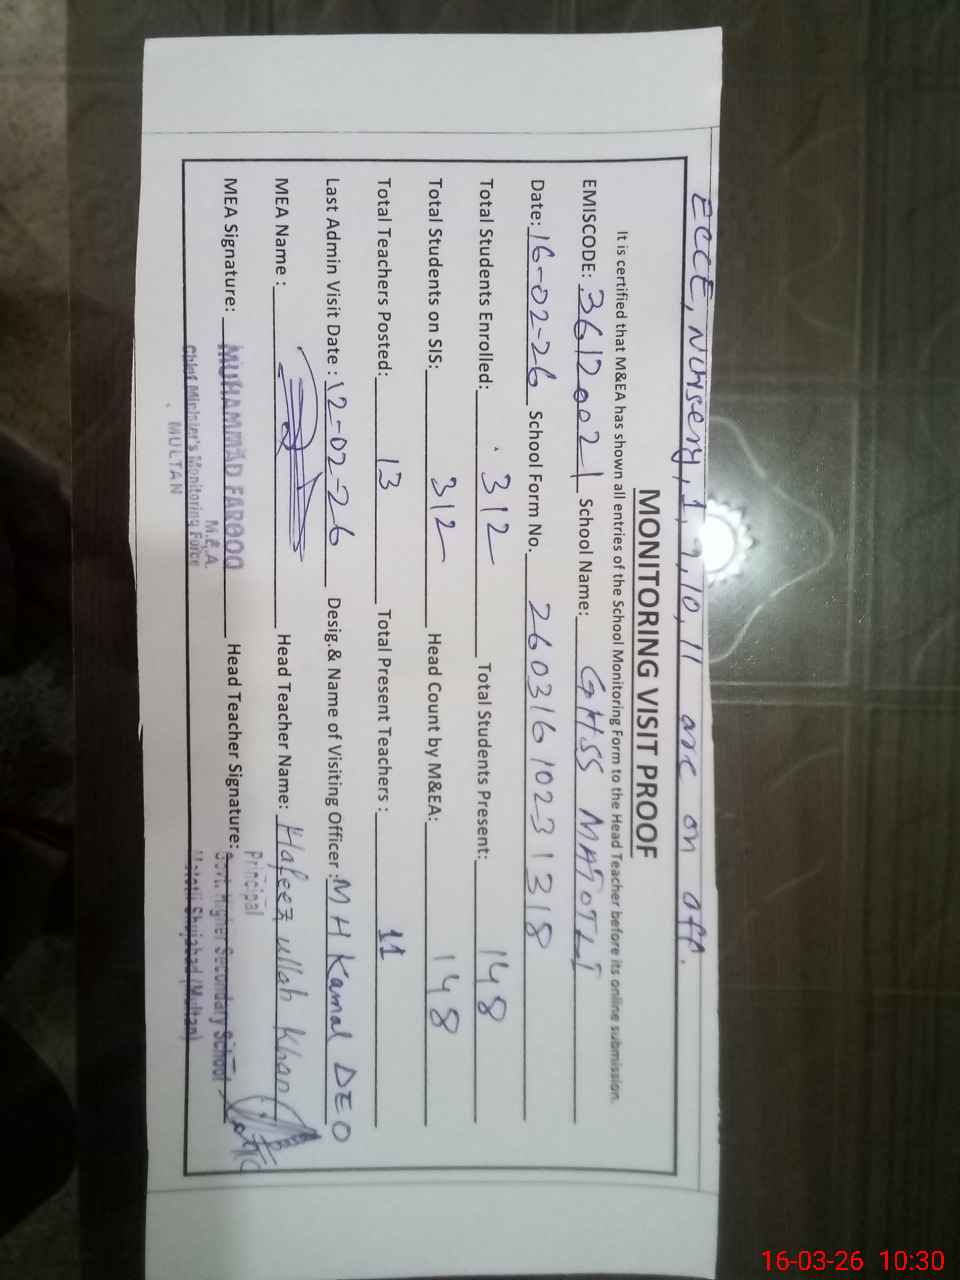 ECCE, Nursery, 1, 9, 10, 11 are on off.
MONITORING VISIT PROOF
It is certified that M&EA has shown all entries of the School Monitoring Form to the Head Teacher before its online submission.
EMISCODE: 36120021 School Name: GHSS MATOTLI
Date: 16-02-26 School Form No. 26031610231318
Total Students Enrolled: 312 Total Students Present: 148
Total Students on SIS: 312 Head Count by M&EA: 148
Total Teachers Posted: 13 Total Present Teachers : 11
Last Admin Visit Date : 12-02-26 Desig.& Name of Visiting Officer : M H Kamal DEO
MEA Name : Head Teacher Name: Hafeez ullah Khan
MEA Signature: Head Teacher Signature:
MUHAMMAD FAROOQ
M.E.A.
Chief Minister's Monitoring Force
MULTAN
Principal
Govt. Higher Secondary School
Matotli Shujabad (Multan)
16-03-26 10:30